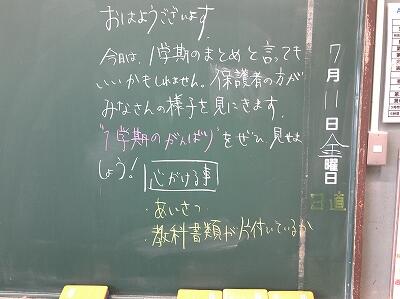 おはようございます。
今日は、1学期のまとめと言っても
いいかもしれません。保護者の方が
みなさんの様子を見にきます。
"1学期のがんばり"をぜひ見せま
しょう!
心がける事
・あいさつ
・教科書類が片付いているか
7月11日金曜日
日直